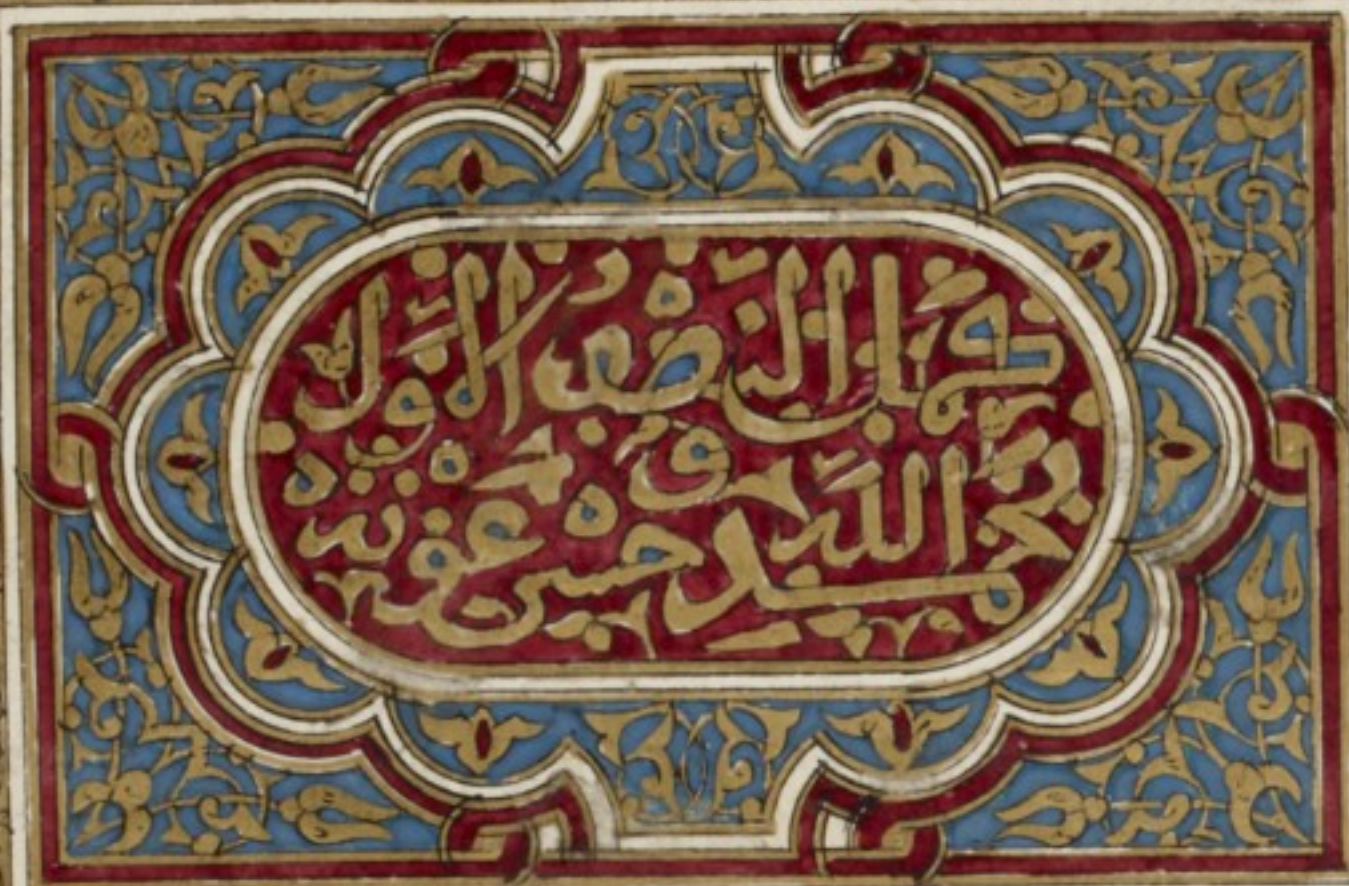 كمل النصف الأول
بحمد الله وحسن عونه